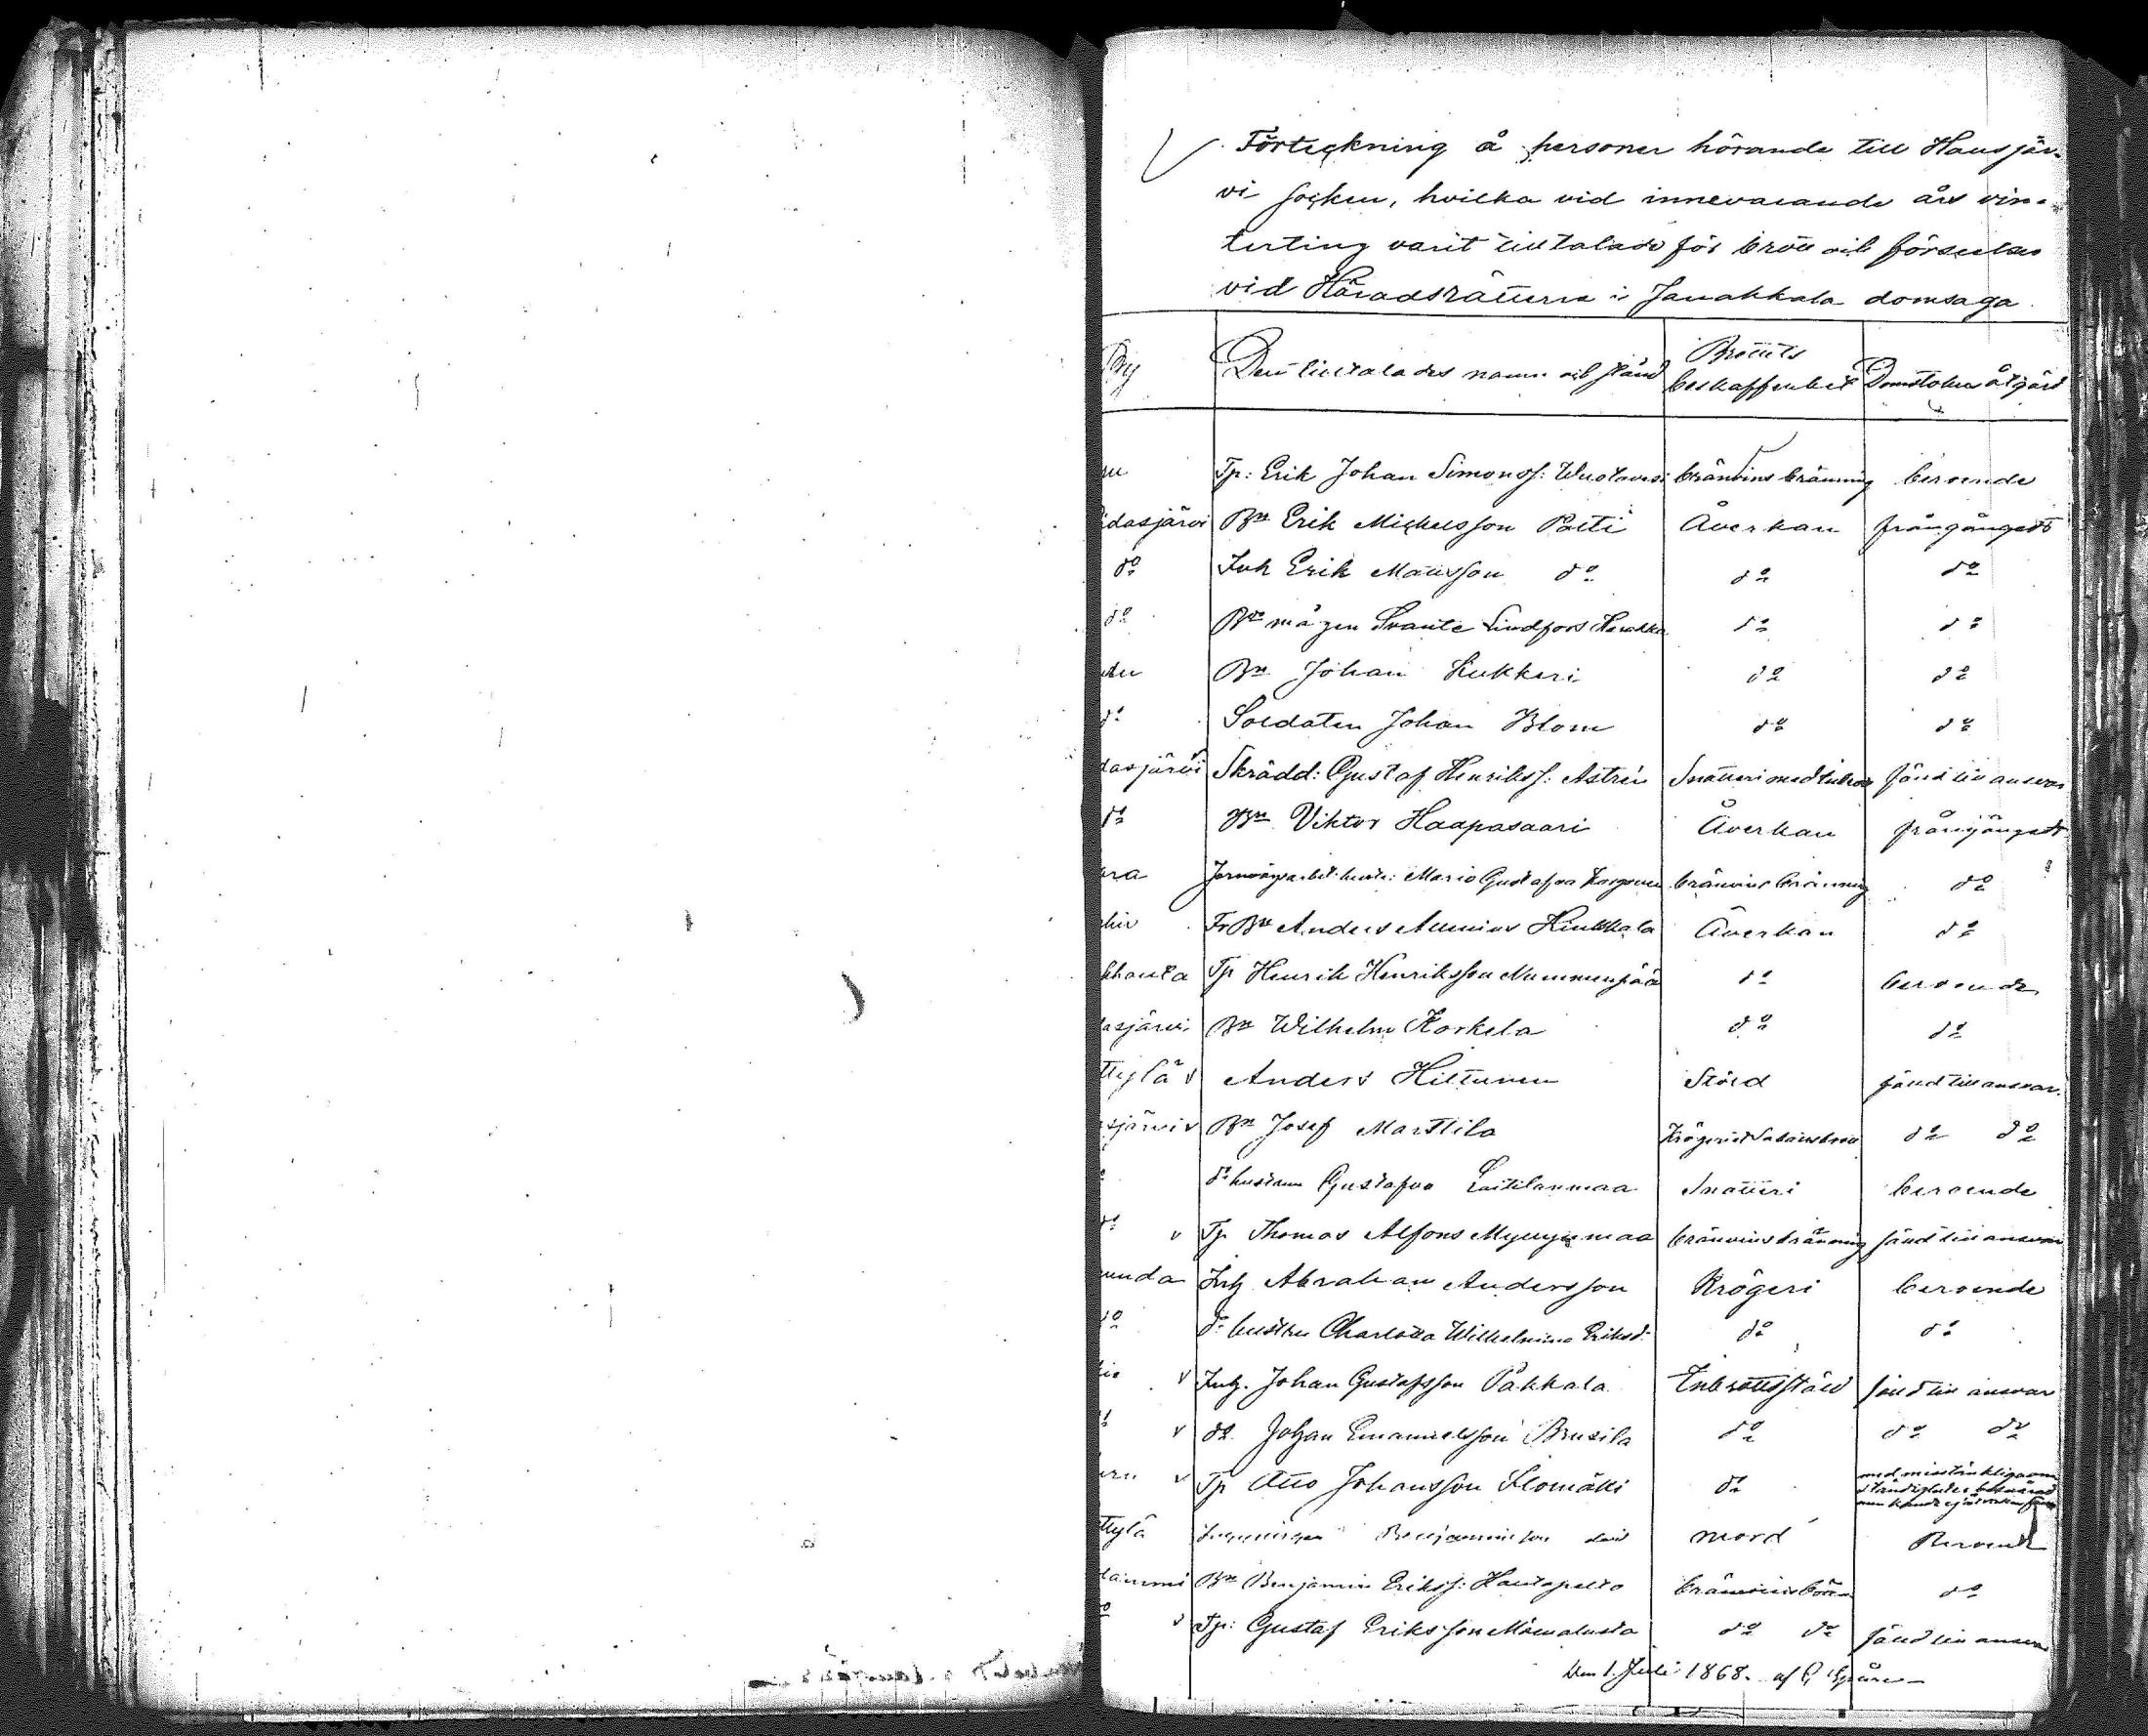 Förteckning å personer hörande till Hausjär-
vi socken, hvilka vid innevarande års vin-
terting varit tilltalade för brott och förseelser
vid Häradsrätterna i Janakkala domsaga.
By Den tilltalades namn och stånd Brottets beskaffenhet Domstolens åtgärd
Tp: Erik Johan Simonss: bränvins bränning beroende
idasjärvi Bn Erik Michelsson Patti Åverkan frångånget
do Inh Erik Mattsson do do do
do Bde mågen Svante Lindfors do do
Bn Johan Kukkeri do do
do Soldaten Johan Blom do do
dasjärvi Skrädd: Gustaf Henrikss: Astrén Snatteri med fäld till ansvar
do Bn Viktor Haapasaari Åverkan frångånget
ara Jernvägsarbet. hustr: Maria Gustafva bränvins bränning do
Fr Bn Anders Hinkkala Åverkan do
khauta Tp Henrik Henriksson Nummenpää do beroende
asjärvi Bn Wilhelm Korkela do do
ttylä v Anders Hiltunen Stöld fäld till ansvar.
sjärvi v Bn Josef Marttila Krögeri & Sabbatsbrott do do
do hustrun Gustafva Laitilanmaa Snatteri beroende
do v Tp Thomas Alfons Myllynmaa bränvins bränning fäld till ansvar
unda Inh Abraham Andersson Krögeri beroende
do do hustru Charlotta Wilhelmina Eriksd: do do
v Inh. Johan Gustafsson Pakkala Inbrottsstöld fäld till ansvar
v do Johan Emanuelsson Brusila do do do
v Tp Otto Johansson Ilomäki do med misstänkliga om-
ständigheter besvärad
men kunde ej
ttylä Benjaminsson mord Beroende
lammi Bn Benjamin Erikss: Hautapelto bränvins bränn do
do v Tp: Gustaf Eriksson do do fäld till ansvar
Den 1. Juli 1868.